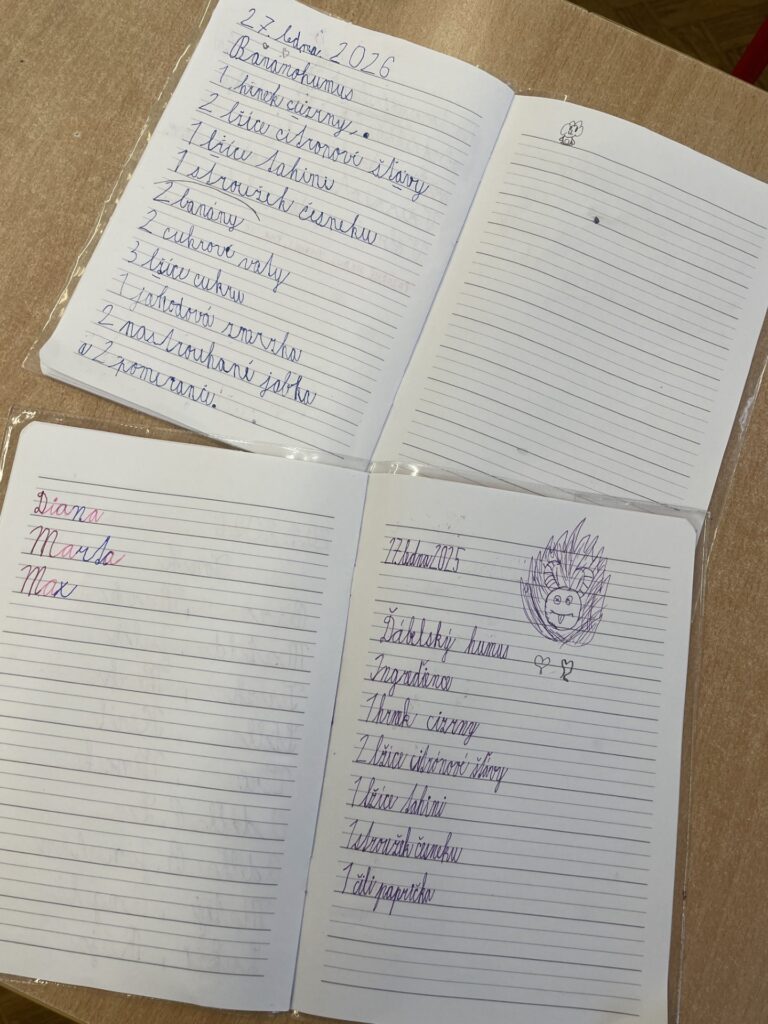 27. ledna 2026
Banánohumus
1 hrnek cizrny,.
2 lžíce citronové šťávy
1 lžíce tahini
1 stroužek česneku
2 banány
2 cukrové vaty
3 lžíce cukru
1 jahodová zmrzka
2 nastrouhané jabka
a 2 pomeranče.
Diana
Marta
Max
27. ledna 2025
Ďábelský humus
1 hrnek cizrny
2 lžíce citrónové šťávy
1 lžíce tahini
1 stroužek česneku
1 čili paprička